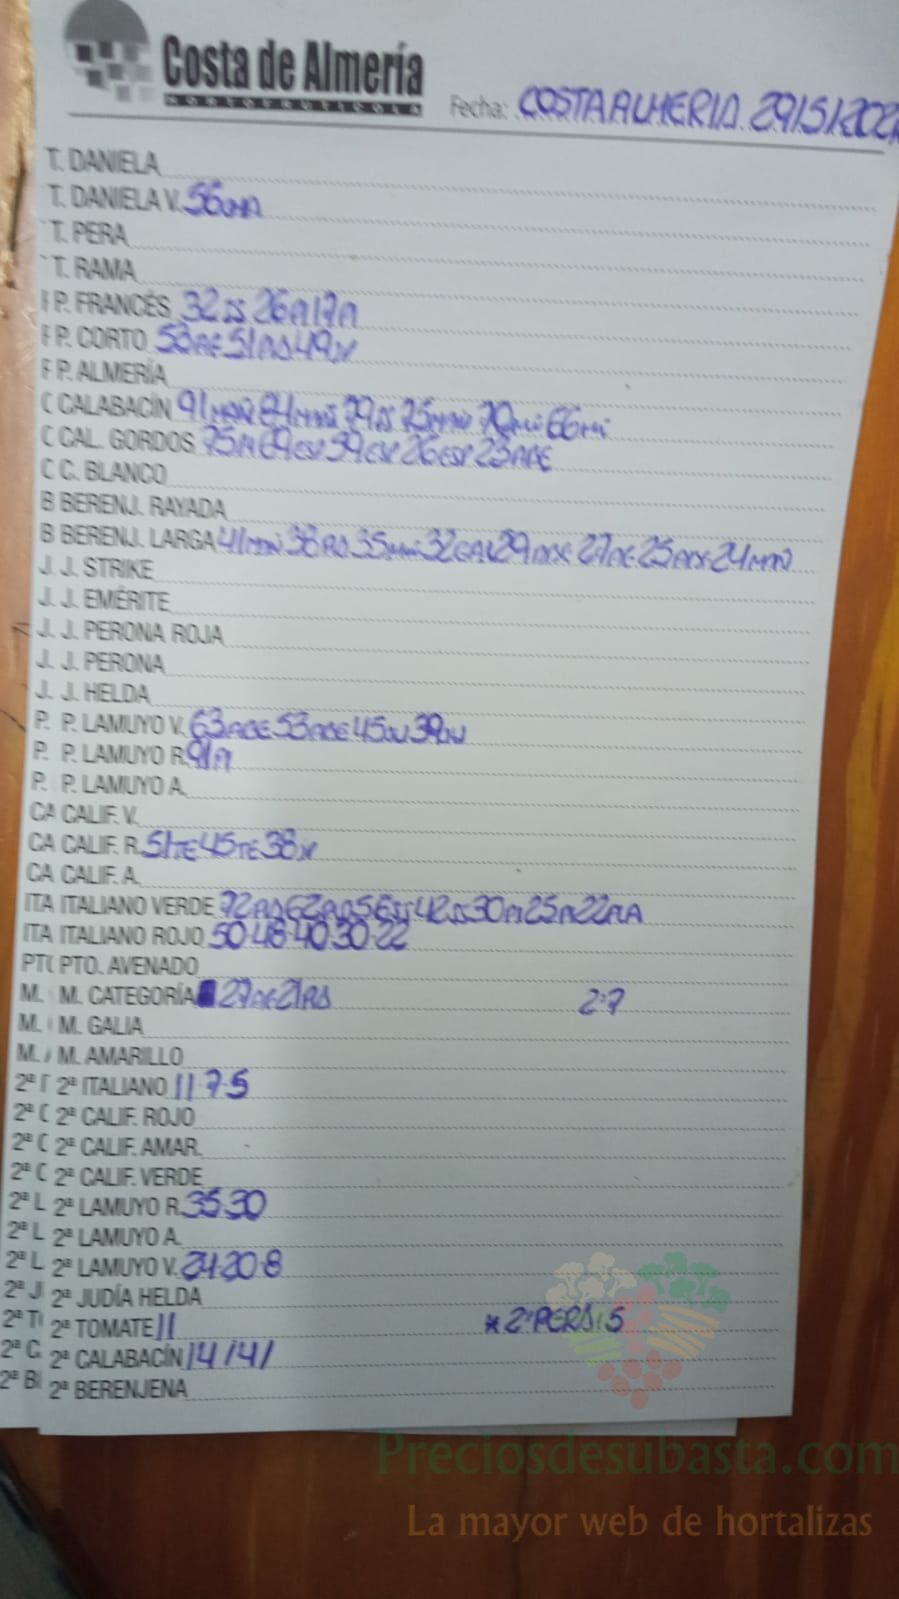 Costa de Almería
HORTOFRUTICOLA
Fecha: COSTA ALMERIA. 29/5/202
T. DANIELA
T. DANIELA V. 56
T. PERA
T. RAMA
P. FRANCÉS 32 JS 26 A 17 A
P. CORTO 53 AE 51 AS 49
P. ALMERÍA
CALABACÍN 91 84 79 JS 75 70 Mi 66 Mi
CAL. GORDOS 75 A 69 ESP 39 ESP 26 ESP 23 ADE
C. BLANCO
BERENJ. RAYADA
BERENJ. LARGA 41 38 AS 35 32 GAL 29 27 AE 25 24
J. STRIKE
J. EMÉRITE
J. PERONA ROJA
J. PERONA
J. HELDA
P. LAMUYO V. 63 ADE 53 ADE 45 39
P. LAMUYO R. 91 A
P. LAMUYO A.
CALIF. V.
CALIF. R. 51 TE 45 TE 38
CALIF. A.
ITALIANO VERDE 72 AS 62 56 42 JS 30 A 25 A 22
ITALIANO ROJO 50-48-40-30-22
PTO. AVENADO
M. CATEGORÍA 27 AE 21 AS 2ª7
M. GALIA
M. AMARILLO
2ª ITALIANO 11 7-5
2ª CALIF. ROJO
2ª CALIF. AMAR.
2ª CALIF. VERDE
2ª LAMUYO R. 35 30
2ª LAMUYO A.
2ª LAMUYO V. 24-20-8
2ª JUDÍA HELDA
2ª TOMATE 11 * 2ª PERA: 5
2ª CALABACÍN 14/4/
2ª BERENJENA
Preciosdesubasta.com
La mayor web de hortalizas